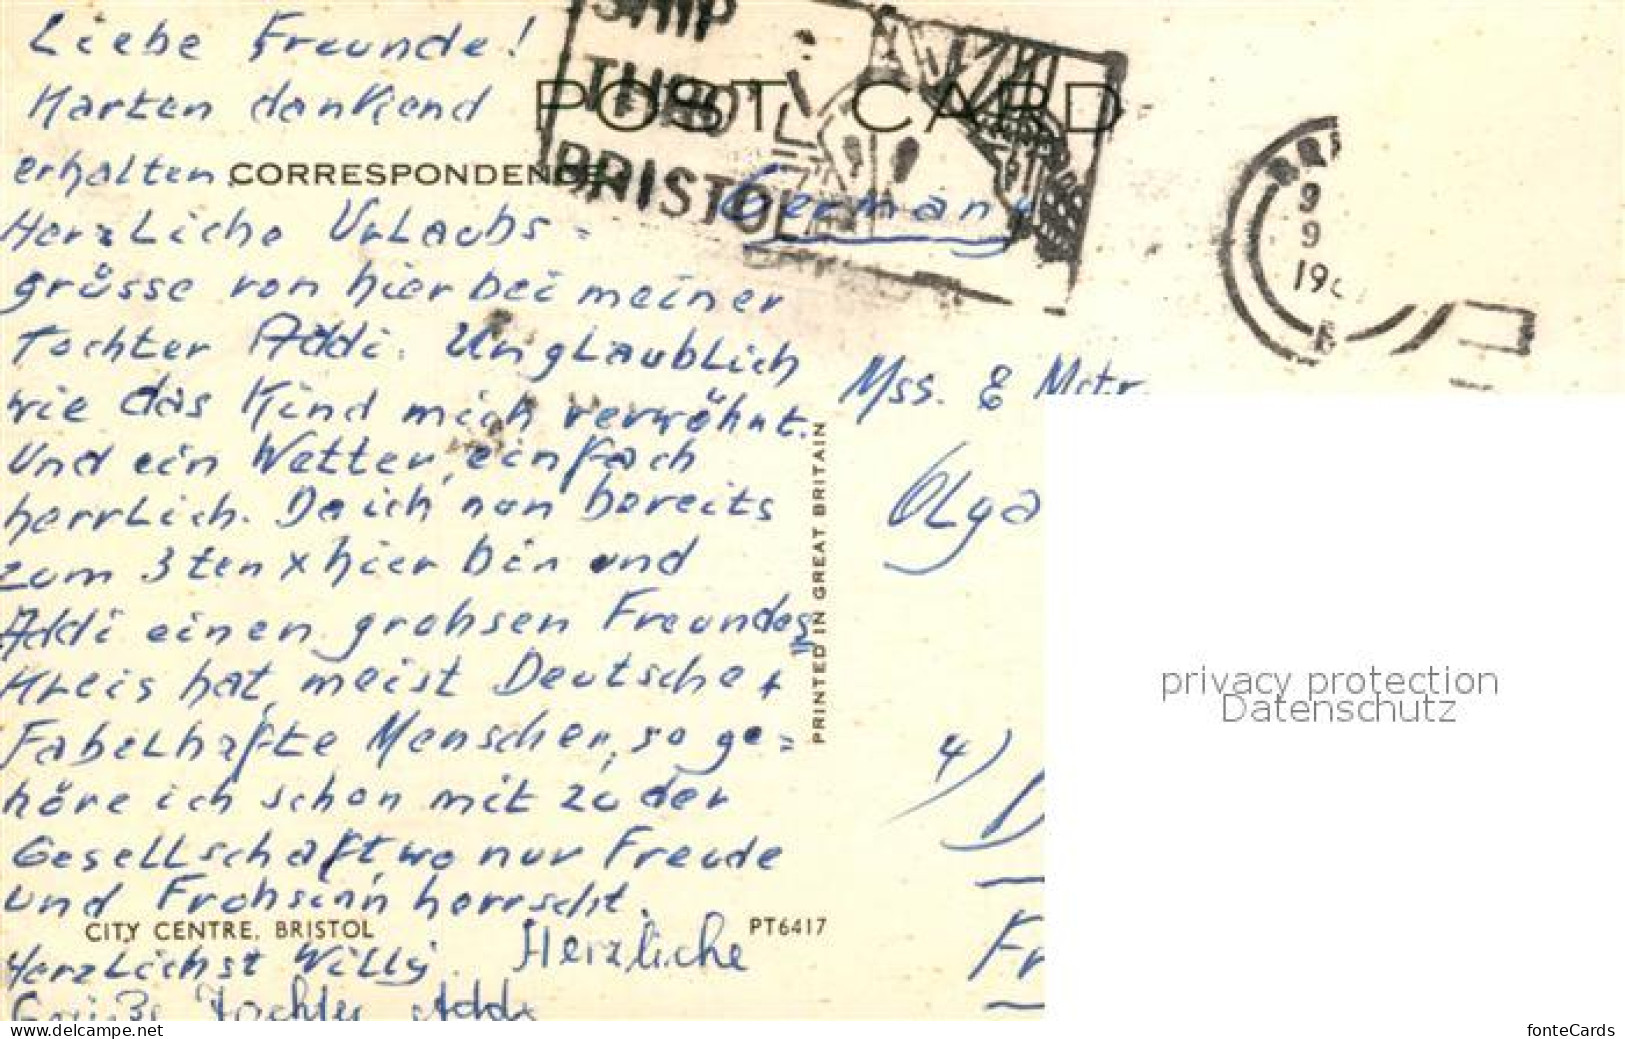 Liebe Freunde!
Karten dankend
erhalten.
Herzliche Urlaubs=
grüsse von hier bei meiner
Tochter Addi. Unglaublich
wie das Kind mich verwöhnt.
Und ein Wetter, einfach
herrlich. Da ich nun bereits
zum 3ten x hier bin und
Addi einen grohsen Freundes
Kreis hat, meist Deutsche +
Fabelhafte Menschen, so ge=
höre ich schon mit zu der
Gesellschaft, wo nur Freude
und Frohsinn herrscht.
Herzlichst Willy. Herzliche
Grüße Tochter Addi
POST CARD
CORRESPONDENCE
SHIP
THRO'
BRISTOL
BRI
9
9
19
Germany
Mss. &
Olga
4)
Fr
PRINTED IN GREAT BRITAIN
CITY CENTRE, BRISTOL
PT6417
privacy protection
Datenschutz
www.delcampe.net
fonteCards